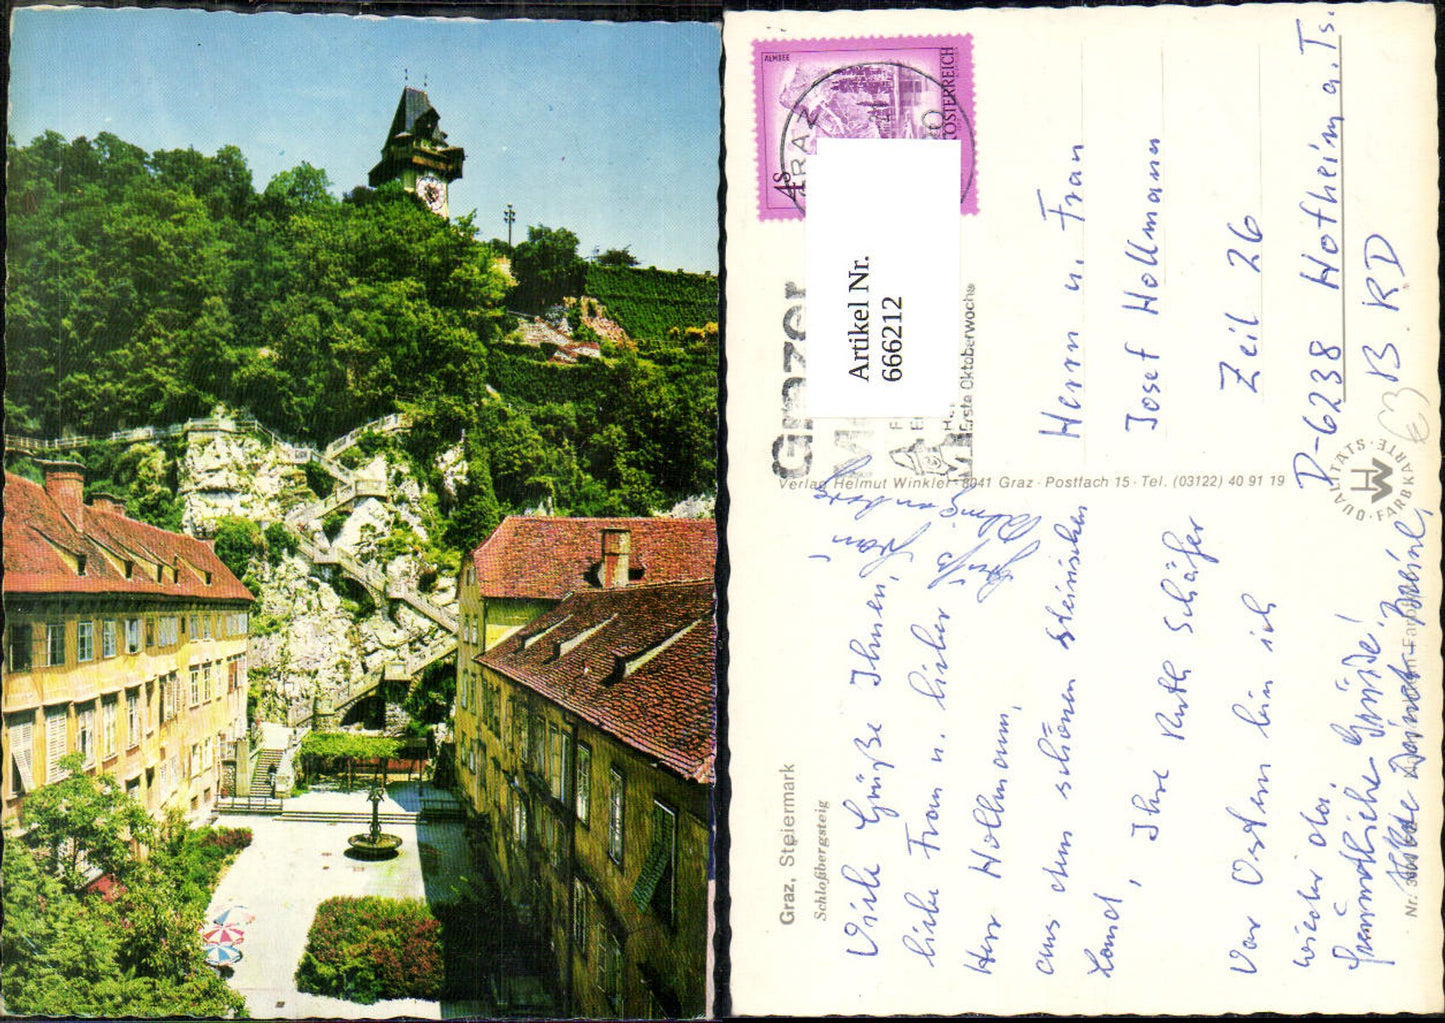 ALMSEE
4s
ÖSTERREICH
Artikel Nr.
666212
Grazer
Erste Oktoberwoche
Herrn u. Frau
Josef Hollmann
Zeil 26
D-6238 Hofheim a. Ts.
BRD
Verlag Helmut Winkler · 8041 Graz · Postfach 15 · Tel. (03122) 40 91 19
QUALITÄTS · FARBKARTE
HW
Graz, Steiermark
Schloßbergsteig
Viele Grüße Ihnen,
liebe Frau u. lieber
Herr Hollmann,
aus dem schönen steirischen
Land,
Ihre Ruth Schäfer
Vor Ostern bin ich
wieder da.
freundliche Grüße!